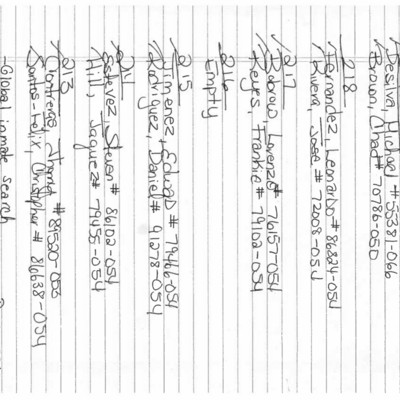 Desilva, Michael #55381-066
Brown, Chad# 70786-050
218
Fernandez, Leonardo #86824-054
Rivera, Jose # 72008-054
217
Lorenzo# 76157-054
Reyes, Frankie # 79102-054
216
Empty
215
Jimenez, # 79466-054
Rodriguez, Daniel# 91278-054
214
Estevez, Steven# 86102-054
Hill, Jaquez# 79455-054
213
Contreras,
Santos-Felix, Christopher # 86638-054
-Global inmate search